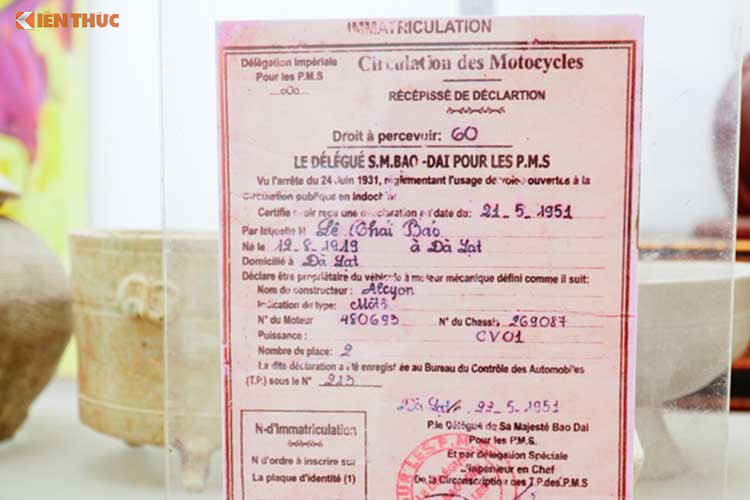 KIẾN THỨC
IMMATRICULATION
Délégation Impériale
Pour les P.M.S
oOo
Circulation des Motocycles
RÉCÉPISSÉ DE DÉCLARTION
Droit à percevoir: 60
LE DÉLÉGUÉ S.M.BAO -DAI POUR LES P.M.S
Vu l'arrête du 24 Juin 1931, réglementant l'usage de voies ouvertes à la
Circulation publique en indoch
Certifie avoir reçu une déclaration en date du: 21_5_1951
Par laquelle M Lê Thai Bao
Né le 12_8_1919 à Dà Lat
Domicilié à Dà Lat
Déclare être propriétaire du véhicule à moteur mécanique défini comme il suit:
Nom de constructeur: Alcyon
Indication de type: Môtô
N° du Moteur 480693 N° du Chassis 269087
Puissance: CV01
Nombre de place: 2
La dite déclaration a été enregistrée au Bureau du Contrôle des Automobiles
(T.P.) sous le N° 213
Dà Lat 23_5_1951
N-d'Immatriculation
N d'ordre à inscrire sur
La plaque d'identité (1)
P.le Délégué de Sa Majesté Bao Dai
Pour les P.M.S.
Et par délégation Spéciale
L'ingénieur en Chef
De la Circonscription des T.P.des P.M.S